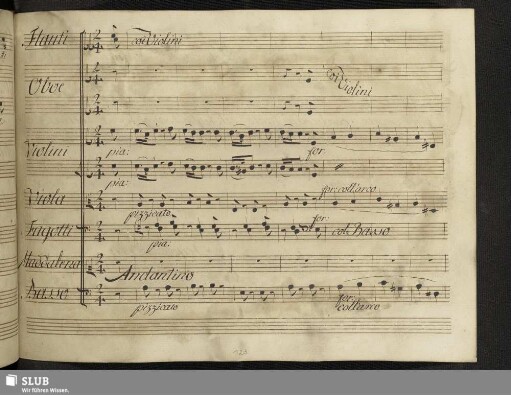 Flauti coi Violini
Oboe
coi Violini
Violini pia: for:
pia:
Viola pizzicato for: coll'arco
Fagotti pia: for: col Basso
Maddalena
Andantino
Basso pizzicato for: coll'arco
SLUB
Wir führen Wissen.